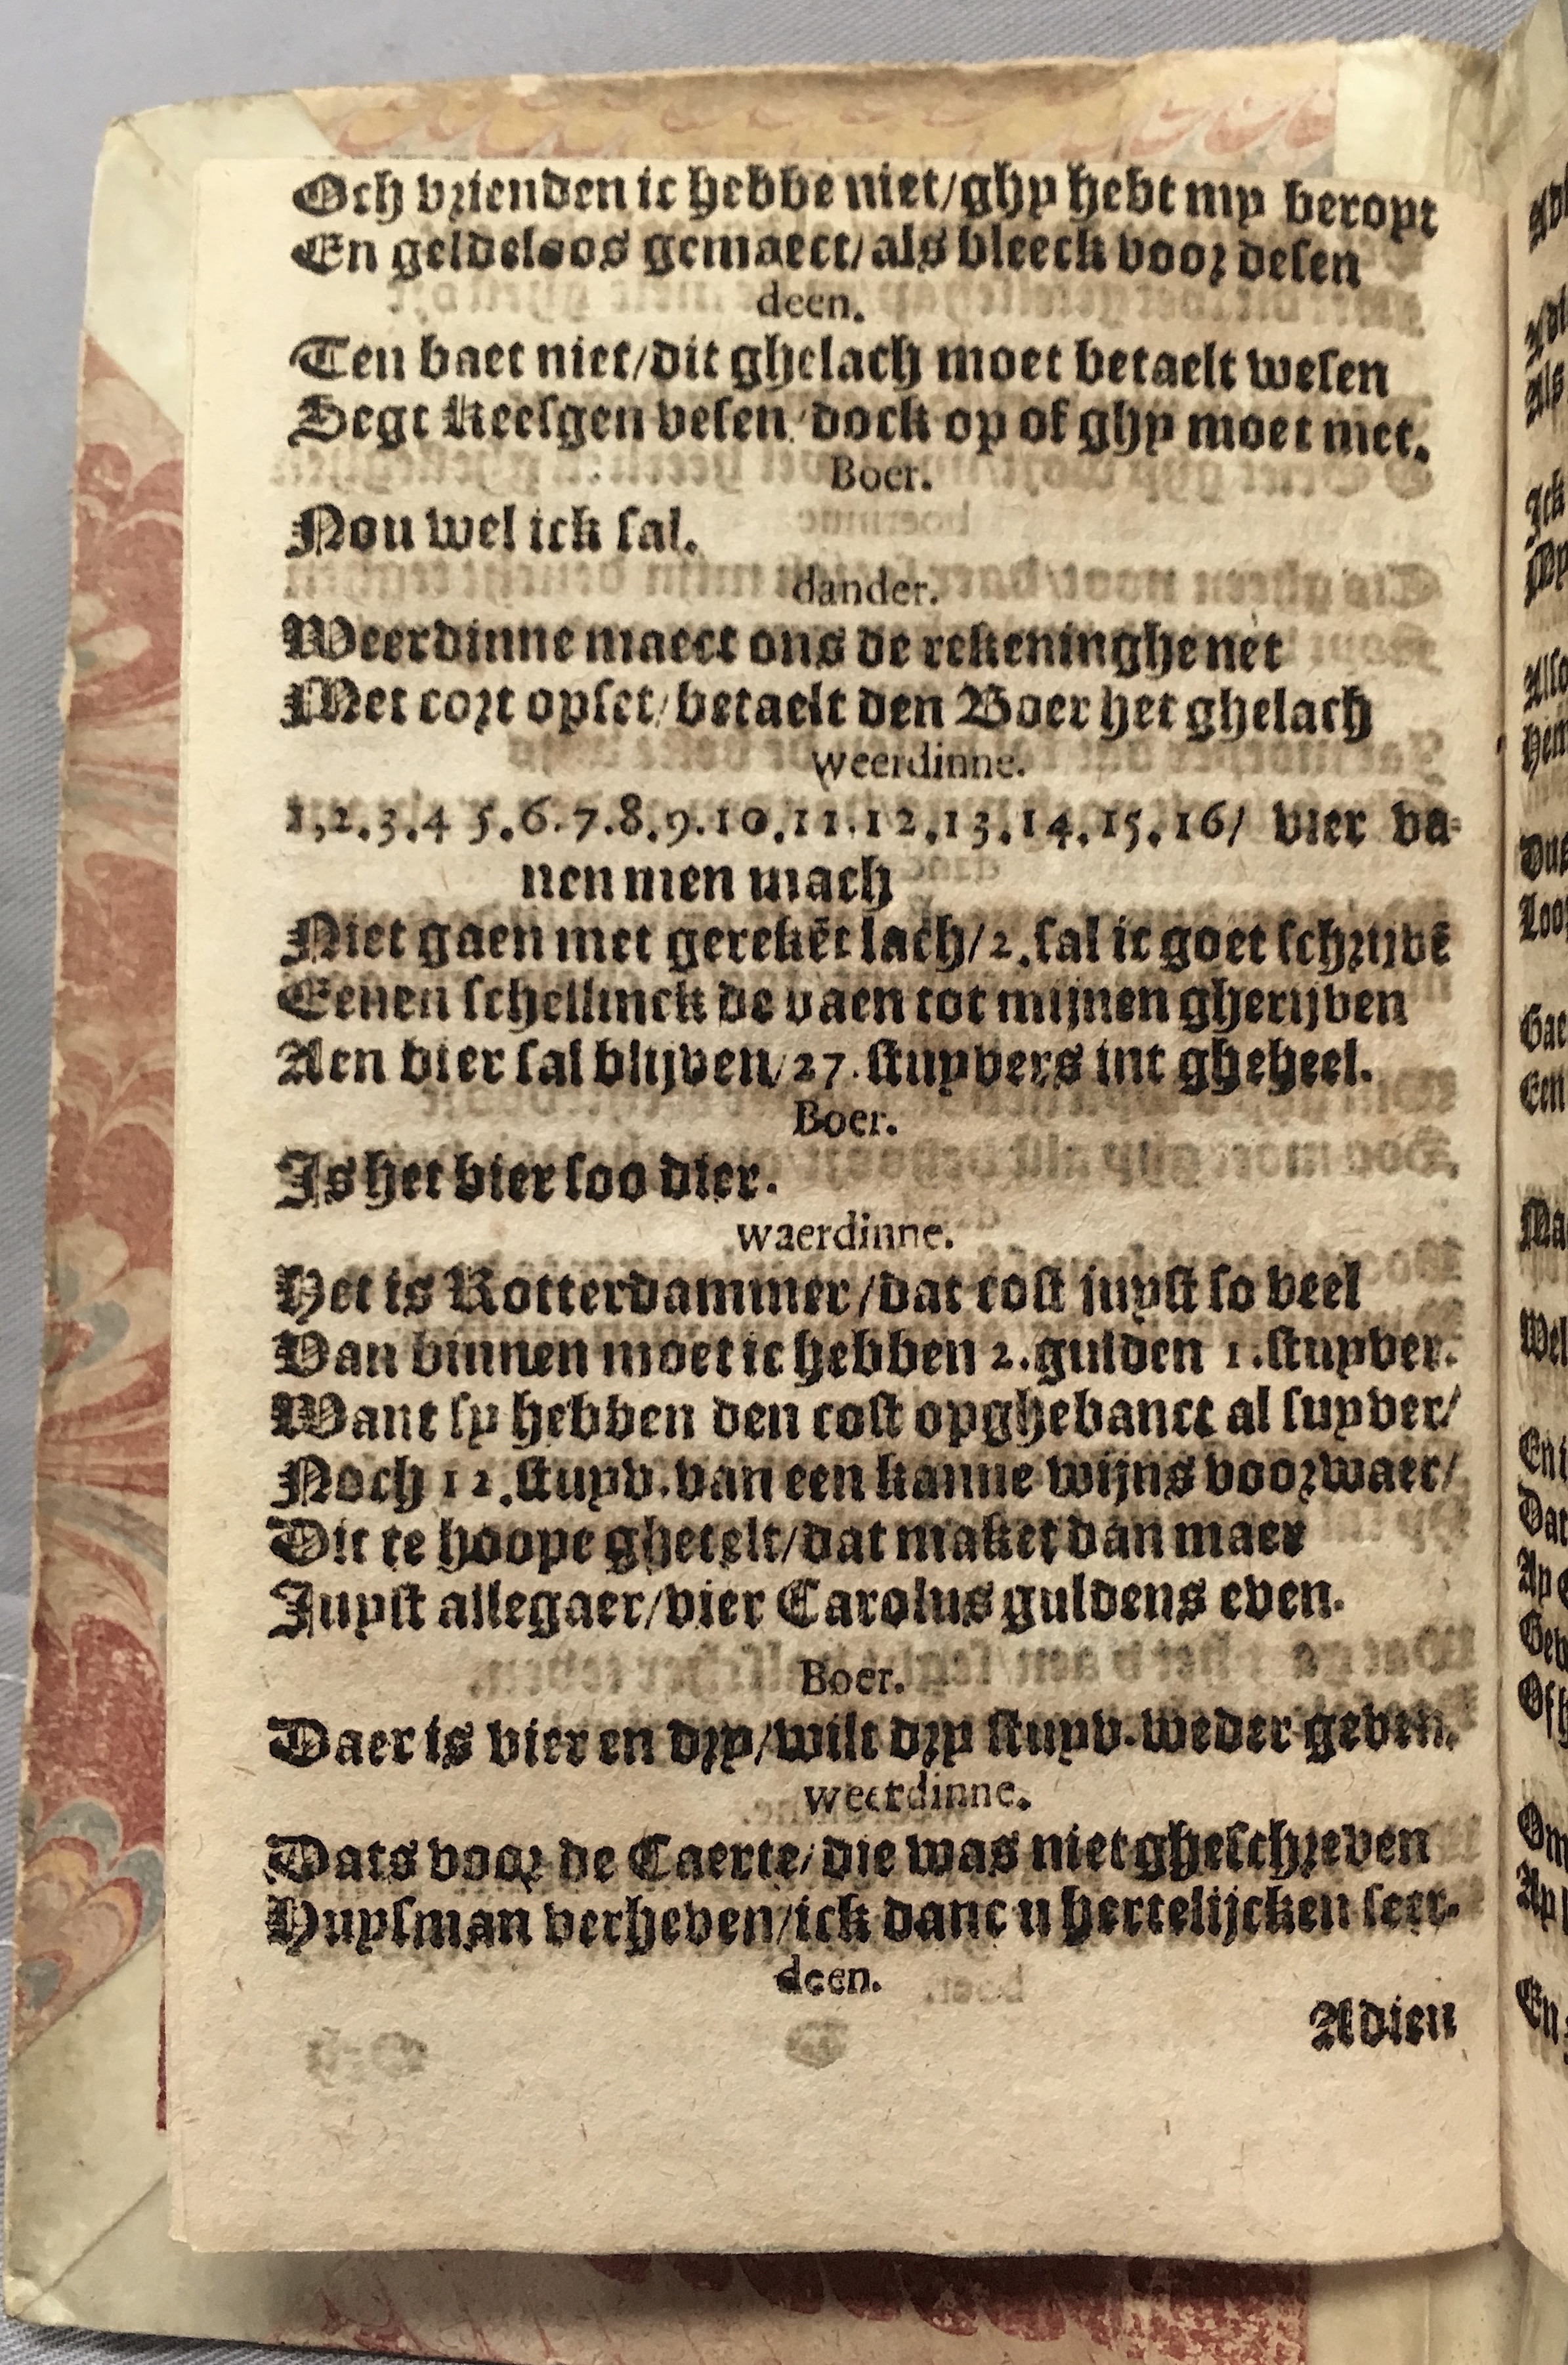 Och vrienden ic hebbe niet/ghy hebt my beropt
En geldeloos gemaect/als bleeck voor desen
deen.
Ten baet niet/dit ghelach moet betaelt wesen
Segt Keesgen vesen/dock op of ghy moet met.
Boer.
Nou wel ick sal.
dander.
Weerdinne maect ons de rekeninghe net
Met cort opset/betaelt den Boer het ghelach
weerdinne.
1,2.3.4 5.6.7.8.9.10.11.12.13.14.15.16/ vier va-
nen men mach
Niet gaen met gerekēt lach/2.sal ic goet schrijvē
Eenen schellinck de vaen tot mijnen gherijven
Aen bier sal blijven/27.stuyvers int gheheel.
Boer.
Is het bier soo dier.
waerdinne.
Het is Rotterdammer/dat cost juyst so veel
Van binnen moet ic hebben 2.gulden 1.stuyver.
Want sy hebben den cost opghebanct al suyver/
Noch 12.stuyv.van een kanne wijns voorwaer/
Dit te hoope ghetelt/dat maket dan maer
Juyst allegaer/vier Carolus guldens even.
Boer.
Daer is vier en dry/wilt dry stuyv.weder geven.
weerdinne.
Dats voor de Caerte/die was niet gheschreven
Huysman verheven/ick danc u hertelijcken seer.
deen.
Adieu